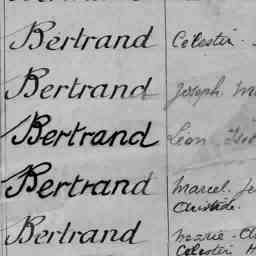 Bertrand Célestin
Bertrand Joseph
Bertrand Léon
Bertrand Marcel
Aristide.
Bertrand Marie
Célestin